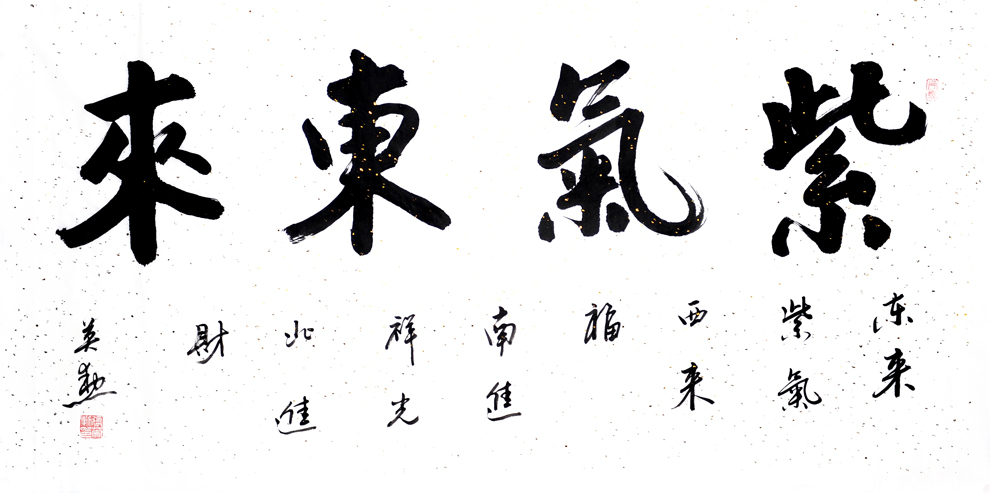 紫氣東來
东来
紫氣
西来
福
南進
祥光
北進
財
英勳